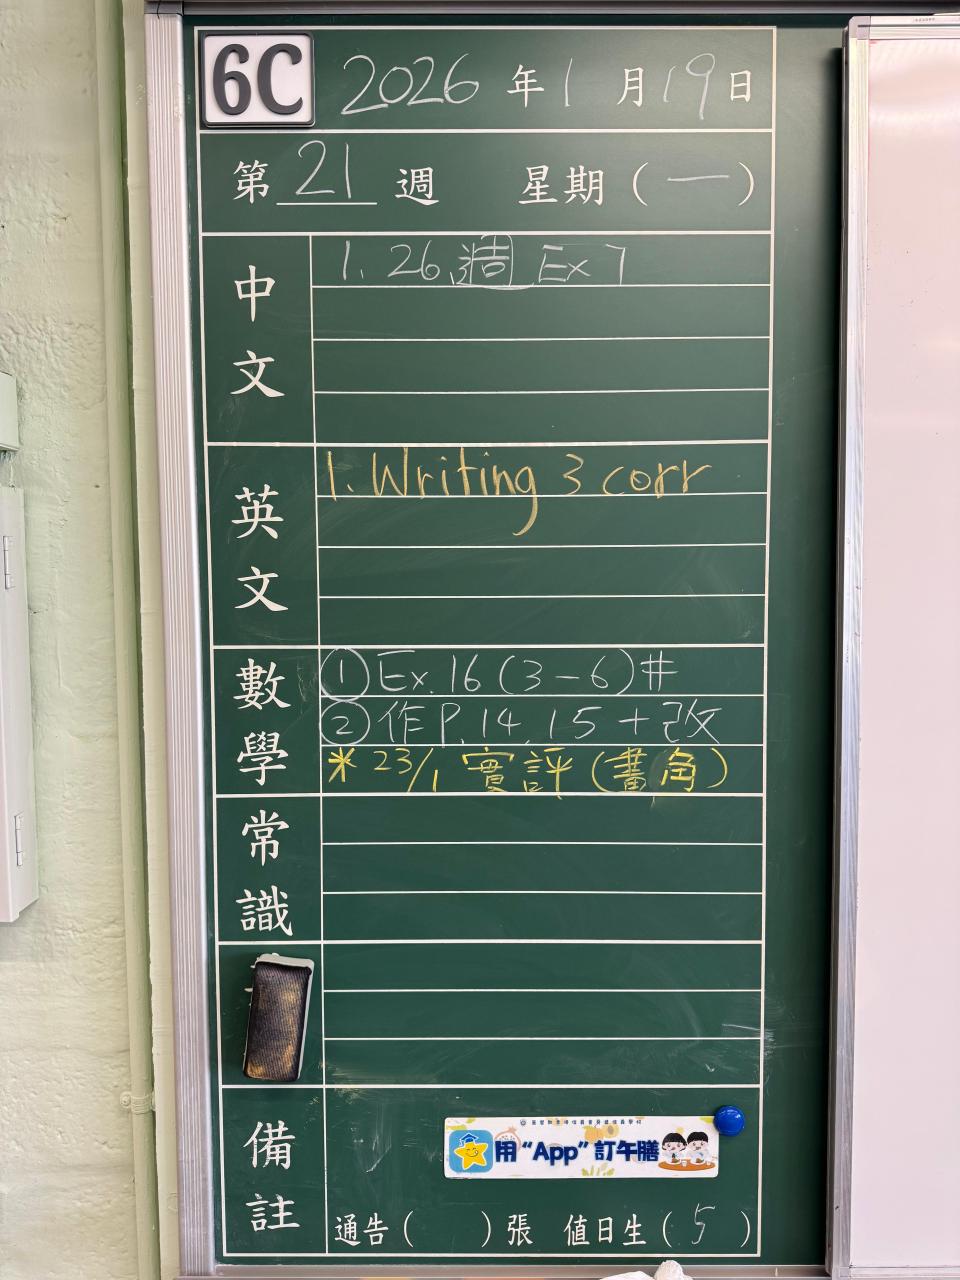 6C 2026 年 1 月 19 日
第 21 週 星期 ( 一 )
中文
1. 26 週 Ex 7
英文
1. Writing 3 corr
數學
① Ex. 16 (3-6) #
② 作 P. 14, 15 + 改
* 23/1 實評 (畫角)
常識
備註
用 "App" 訂午膳
通告 ( ) 張 值日生 ( 5 )